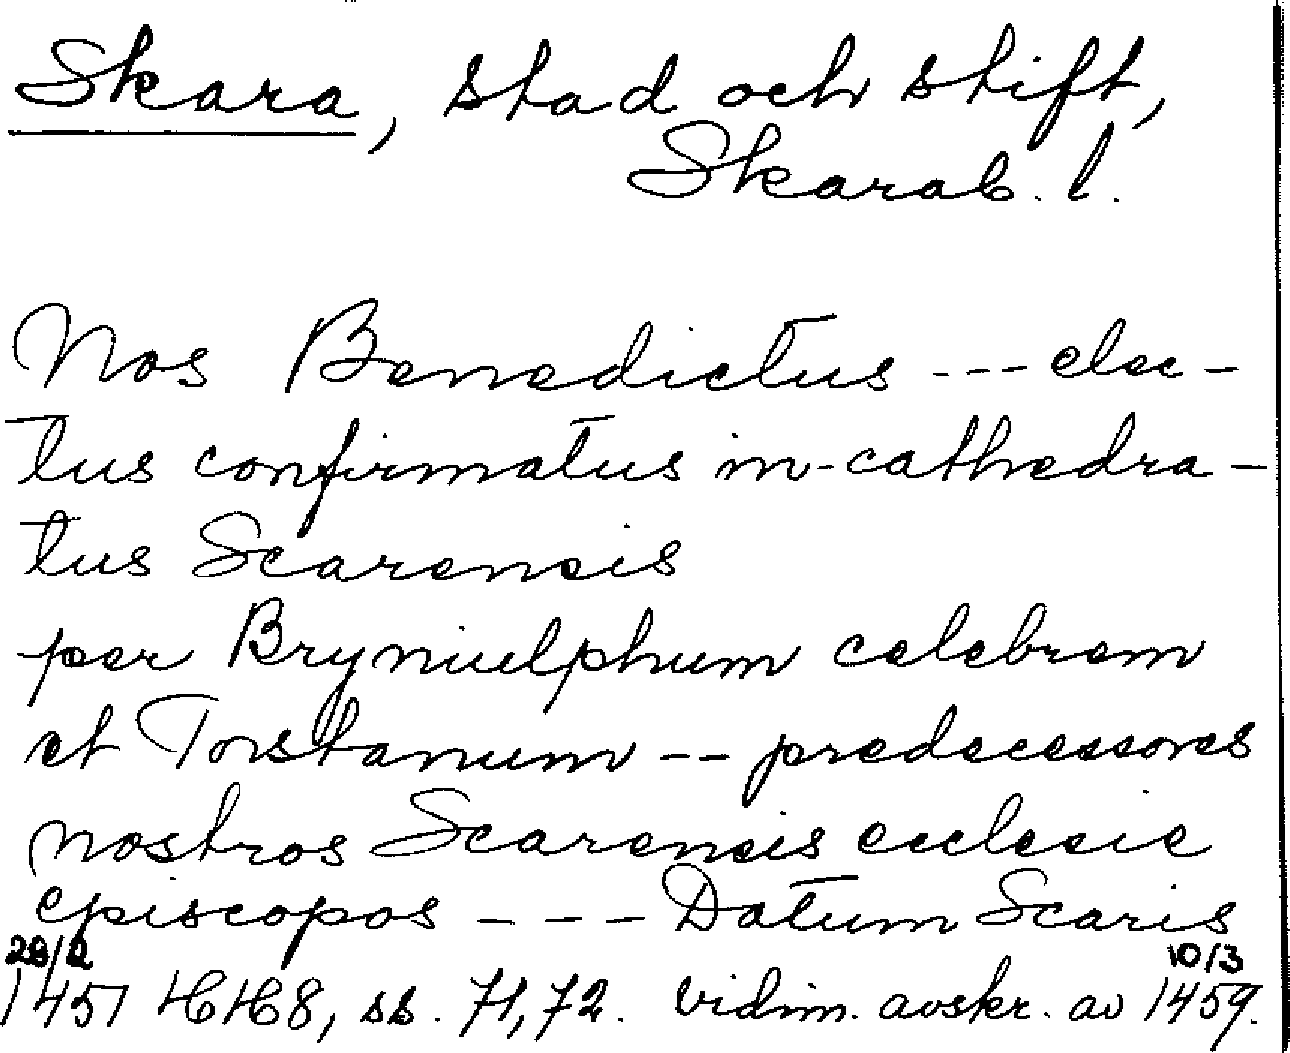 Skara, stad och stift,
Skarab. l.
Nos Benedictus --- elec-
tus confirmatus in-cathedra-
tus Scarensis
per Bryniulphum celebrem
et Torstanum -- predecessores
nostros Scarensis ecclesie
episcopos --- Datum Scaris
28/2 10/3
1451 HH8, ss. 71, 72. vidim. avskr. av 1459.